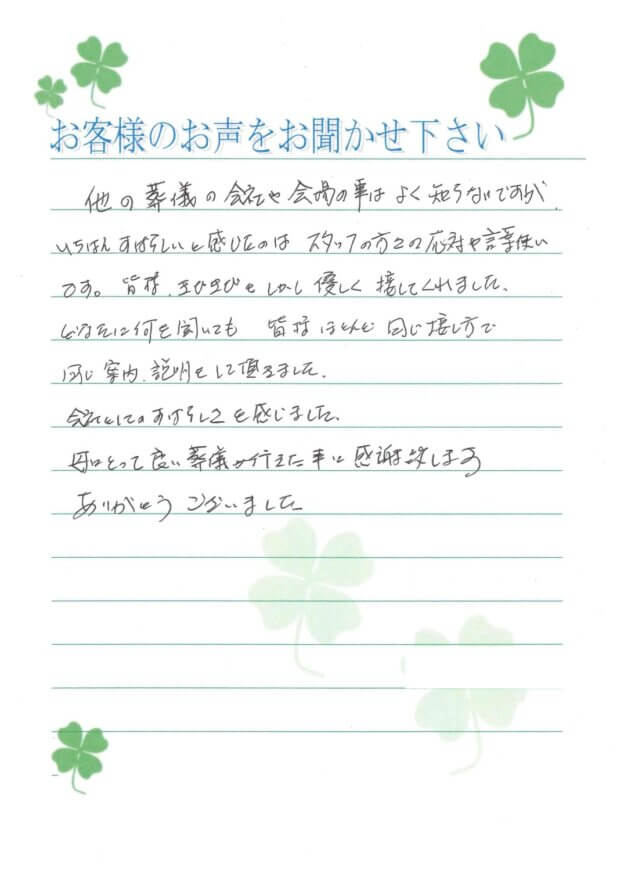 お客様のお声をお聞かせ下さい
他の葬儀の会社や会場の事は よく知らないですが、
いちばんすばらしいと感じたのは スタッフの方々の応対や言葉使い
です。皆様、きびきびとしかし優しく 接してくれました。
どなたに何を聞いても 皆様ほとんど 同じ接し方で
同じ案内、説明をして頂きました。
会社としてのすばらしさを感じました。
母にとって良い葬儀が行えた事に感謝致します
ありがとう ございました